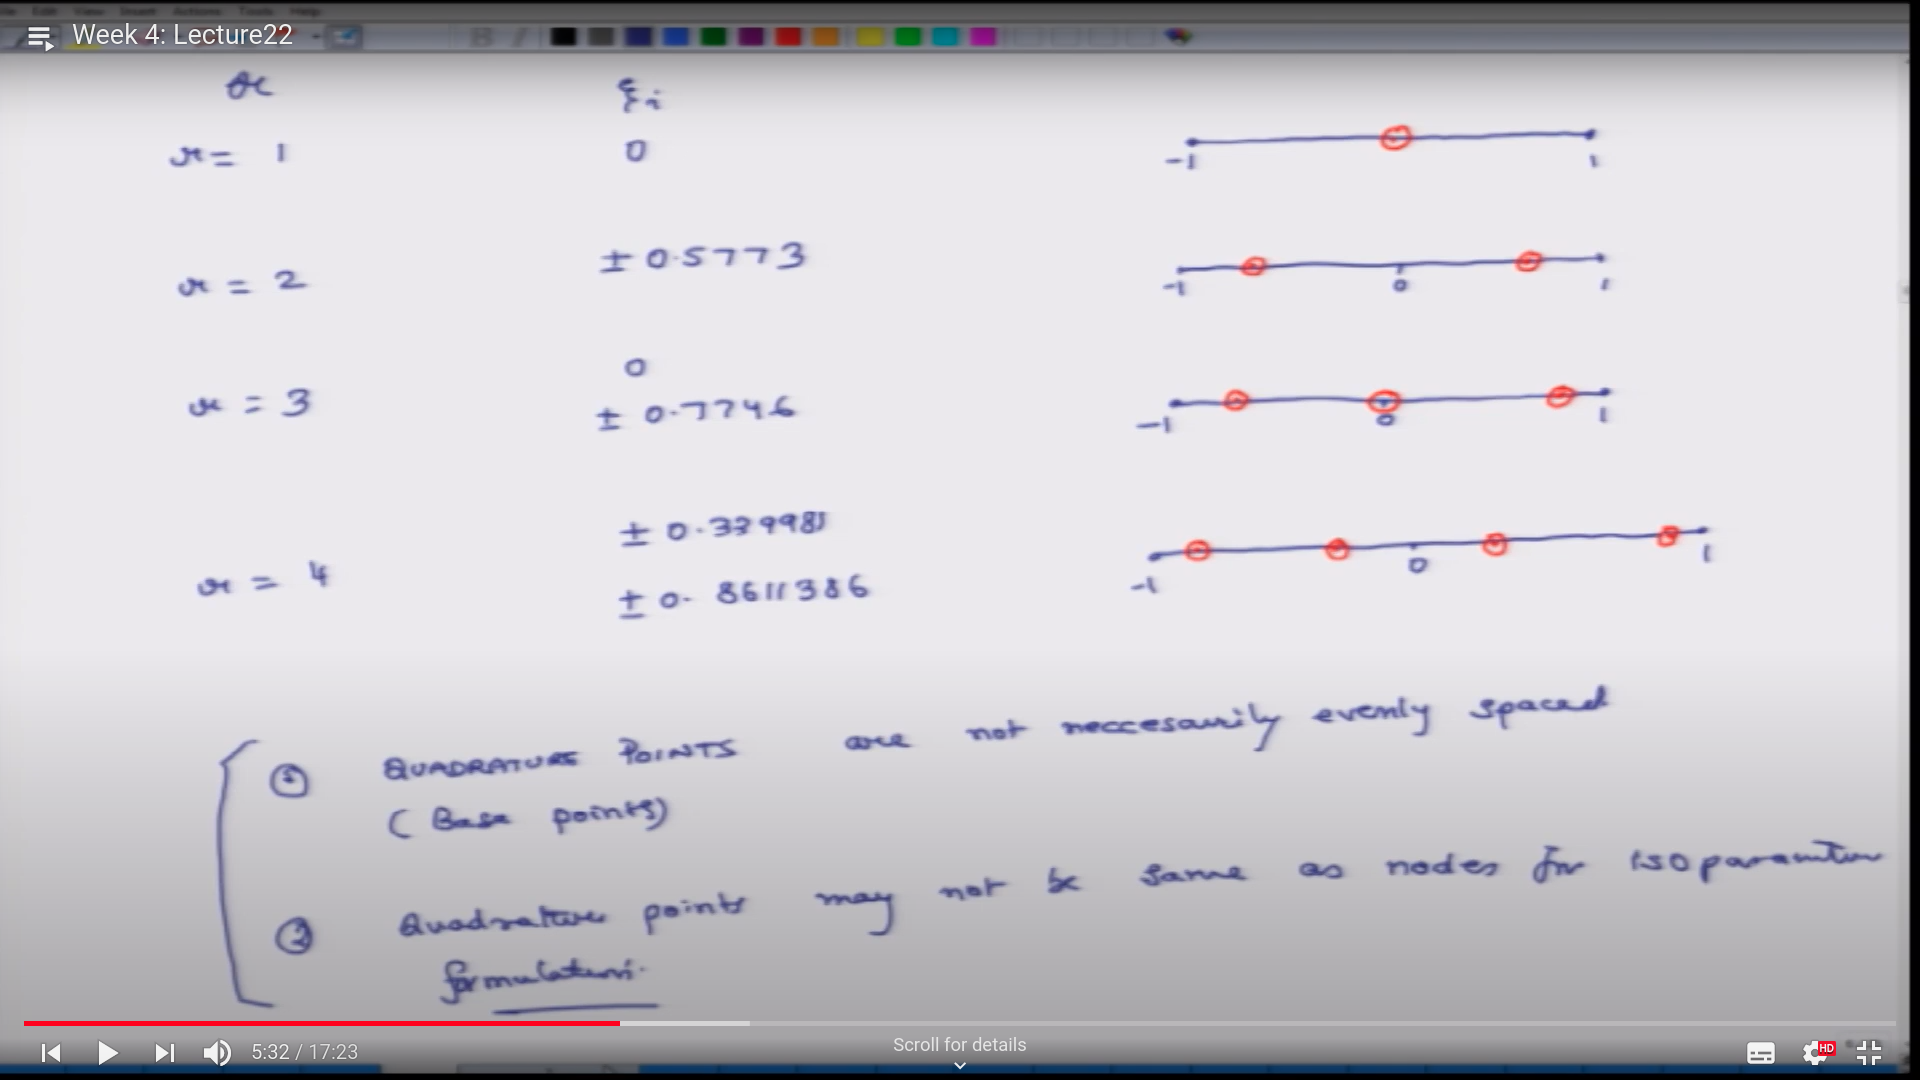 File Edit View Insert Actions Tools Help
Week 4: Lecture22
r ξi
r = 1 0 -1 1
r = 2 ± 0.5773 -1 0 1
0
r = 3 ± 0.7746 -1 0 1
± 0.339981
r = 4 ± 0.8611386 -1 0 1
① QUADRATURE POINTS are not neccesarily evenly spaced
(Base points)
② Quadrature points may not be same as nodes for isoparametric
formulation.
5:32 / 17:23 Scroll for details HD